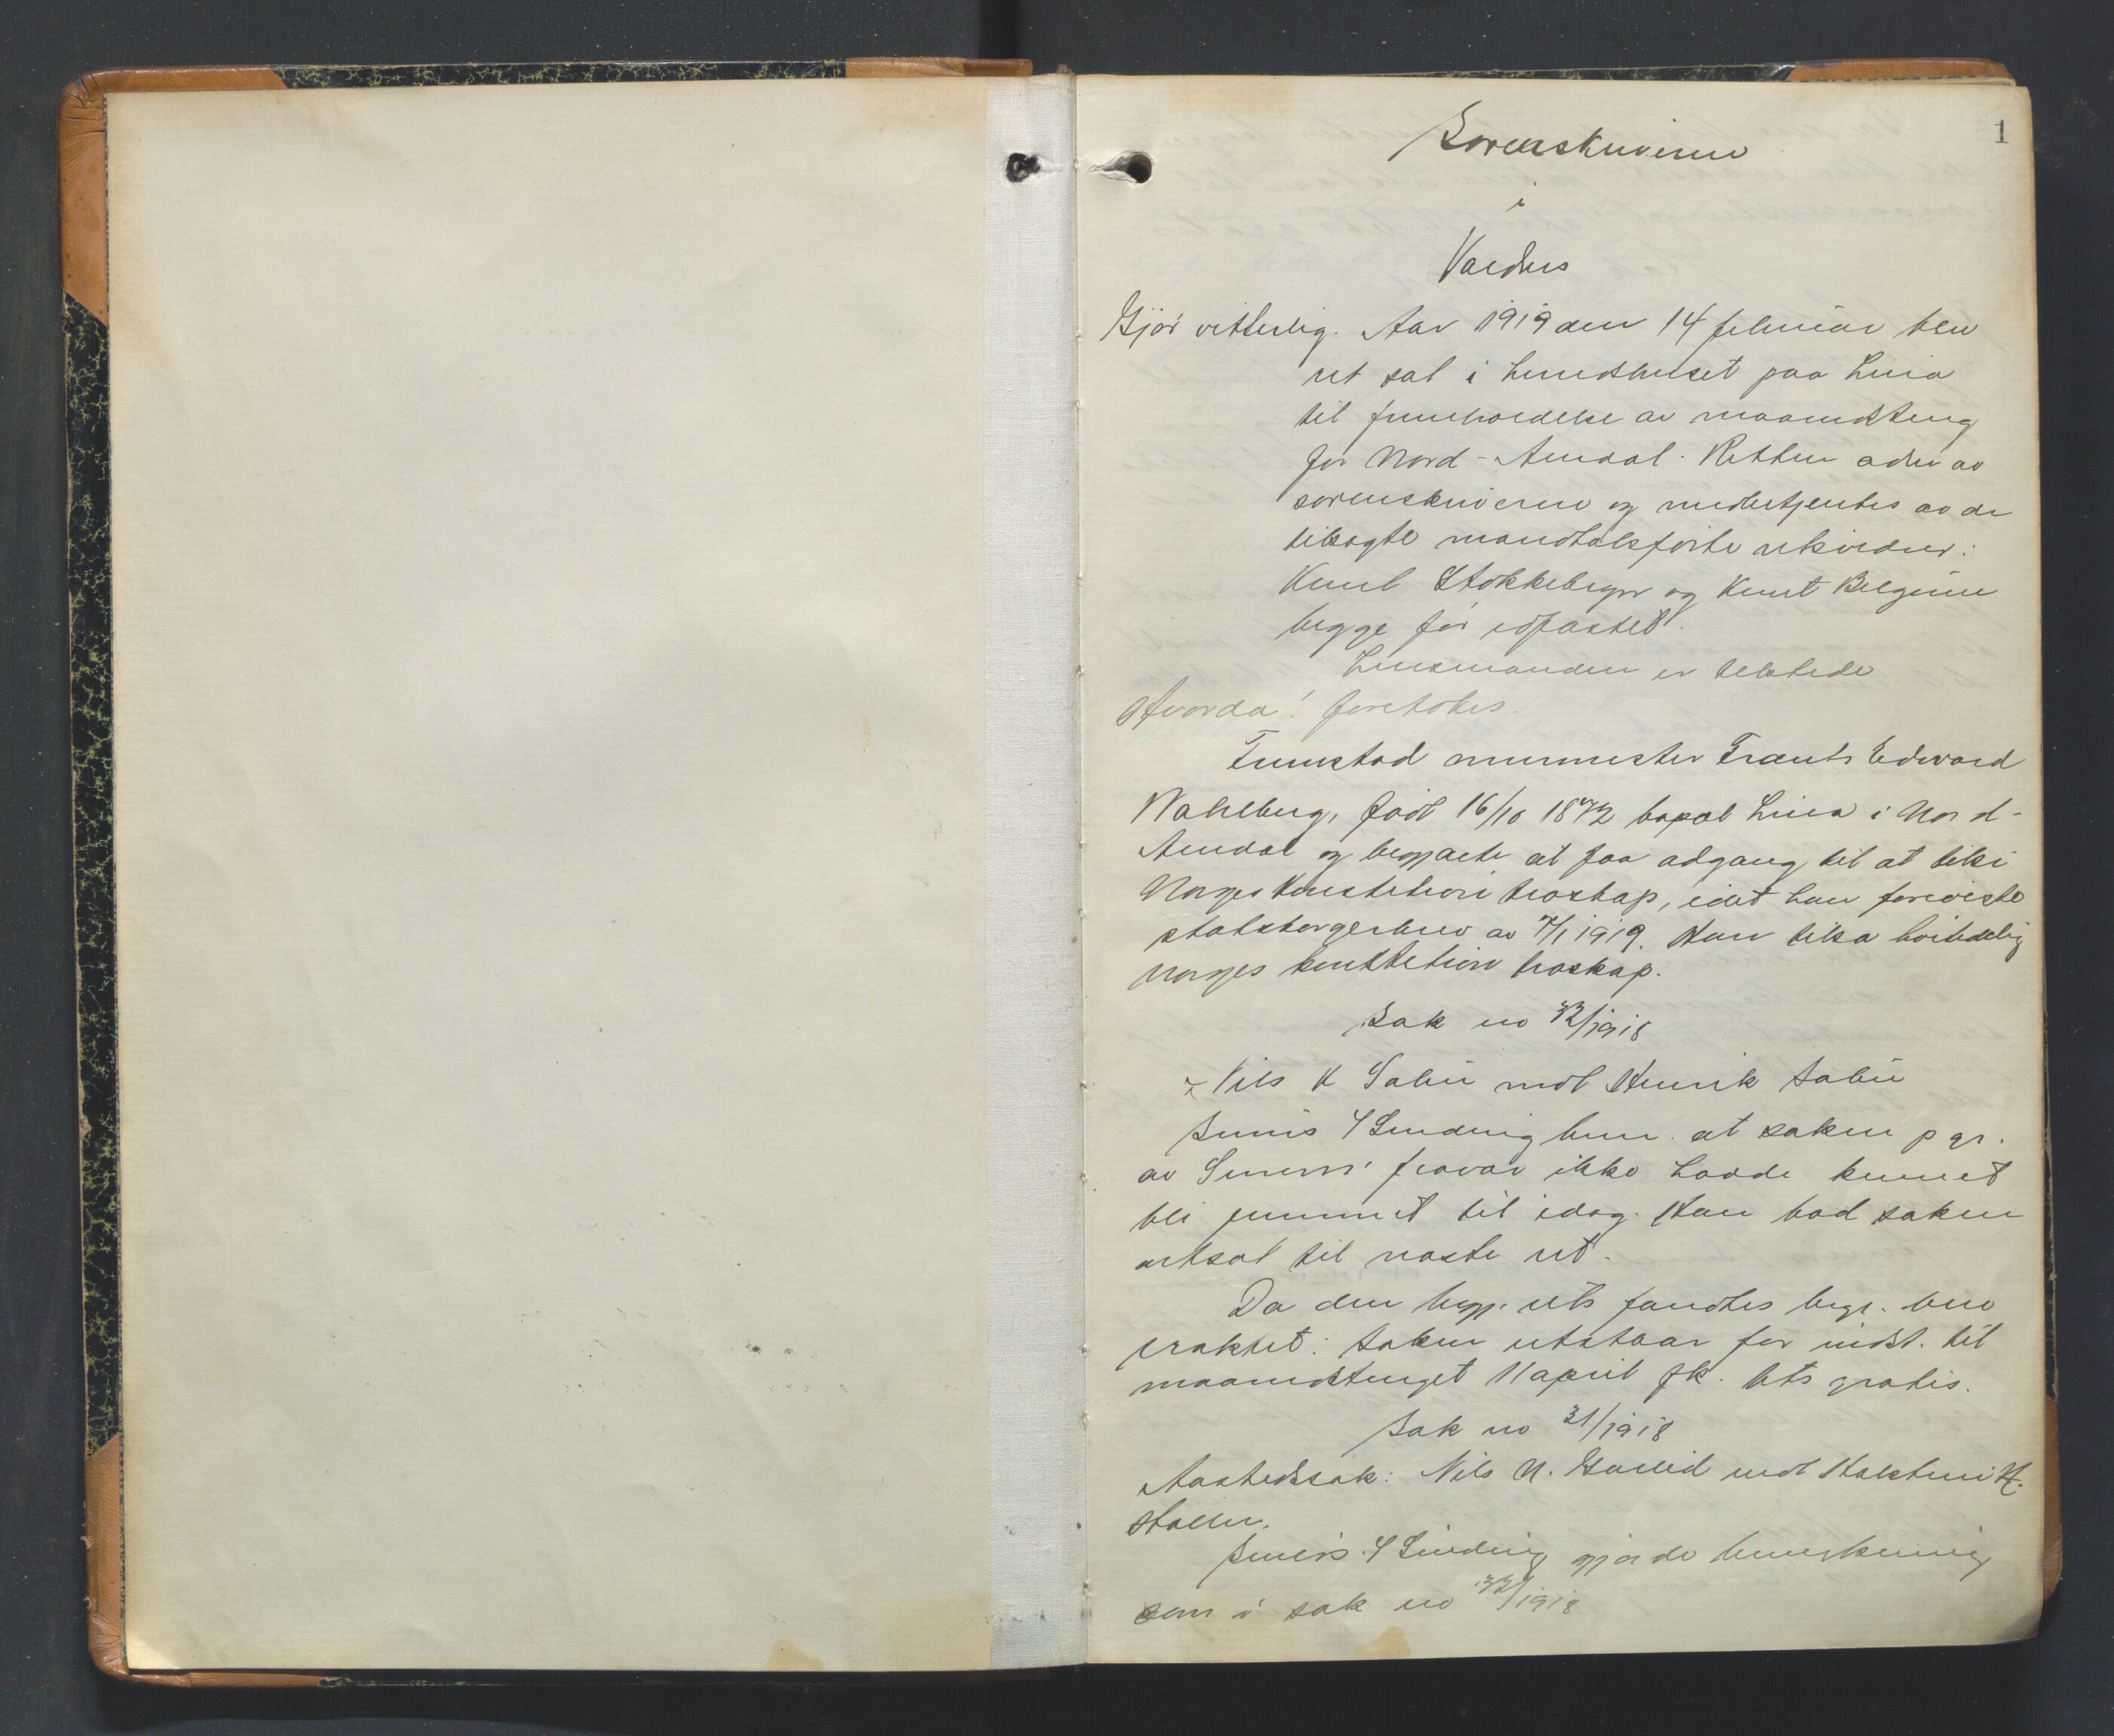 1
Sorenskriveren
i
Valdres
Gjør vitterlig. Aar 1919 den 14 februar blev
ret sat i herredshuset paa Leira
til fremholdelse av maanedsting
for Nord-Aurdal. Retten adm av
sorenskriveren og medbetjentes av de
tilsagte mandtalsførte retsvidner:
Knut Stokkebryn og Knut Belgum
begge før edfæstet.
Lensmanden er tilstede
Hvorda! foretokes.
Fremstod murmester Frants Edvard
Wahlberg, født 16/10 1872 bopæl Leira i Nord-
Aurdal og begjærte at faa adgang til at tilsi
Norges Konstitution troskap, idet han foreviste
statsborgerbrev av 7/1 1919. Han tilsa høitidelig
Norges konstitution troskap.
Sak no 32/1918
Nils K Sebu mot Henrik Sebu
Sinding bem. at saken p gr.
av fravær ikke hadde kunnet
bli fremmet til idag. Han bad saken
utsat til næste ret.
Da den begj. uts fandtes begr. blev
eraktet: Saken utstaar for indst. til
maanedstinget 11 april fk. Uts gratis.
Sak no 31/1918
Aastedssak: Nils N. mot Halsten H.
Sinding gjorde bemerkning
som i sak no 32/1918